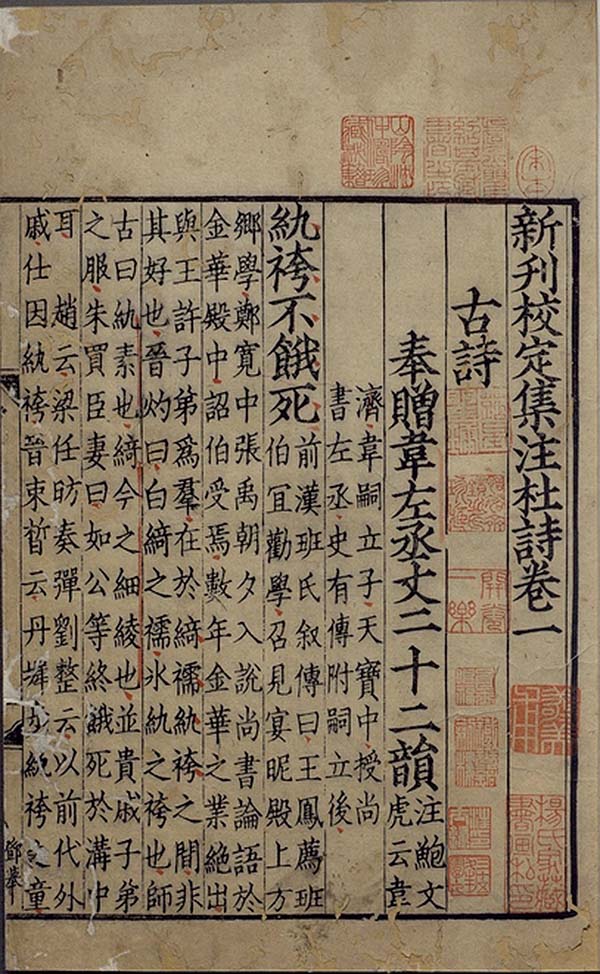 新刊校定集注杜詩卷一
古詩
奉贈韋左丞丈二十二韻
注鮑文
虎云韋
濟韋嗣立子天寶中授尚
書左丞史有傳附嗣立後
紈袴不餓死
前漢班氏叙傳曰王鳳薦班
伯宜勸學召見宴昵殿上方
鄉學鄭寬中張禹朝夕入說尚書論語於
金華殿中詔伯受焉數年金華之業絕出
與王許子弟爲羣在於綺襦紈袴之間非
其好也晉灼曰白綺之襦冰紈之袴也師
古曰紈素也綺今之細綾也並貴戚子弟
之服朱買臣妻曰如公等終餓死於溝中
耳 趙云梁任昉奏彈劉整云以前代外
戚仕因紈袴晉束晳云丹墀步紈袴之童
鄧舉
山陰沈仲濤珍藏秘籍
開卷一樂
楊氏家藏書畫私印